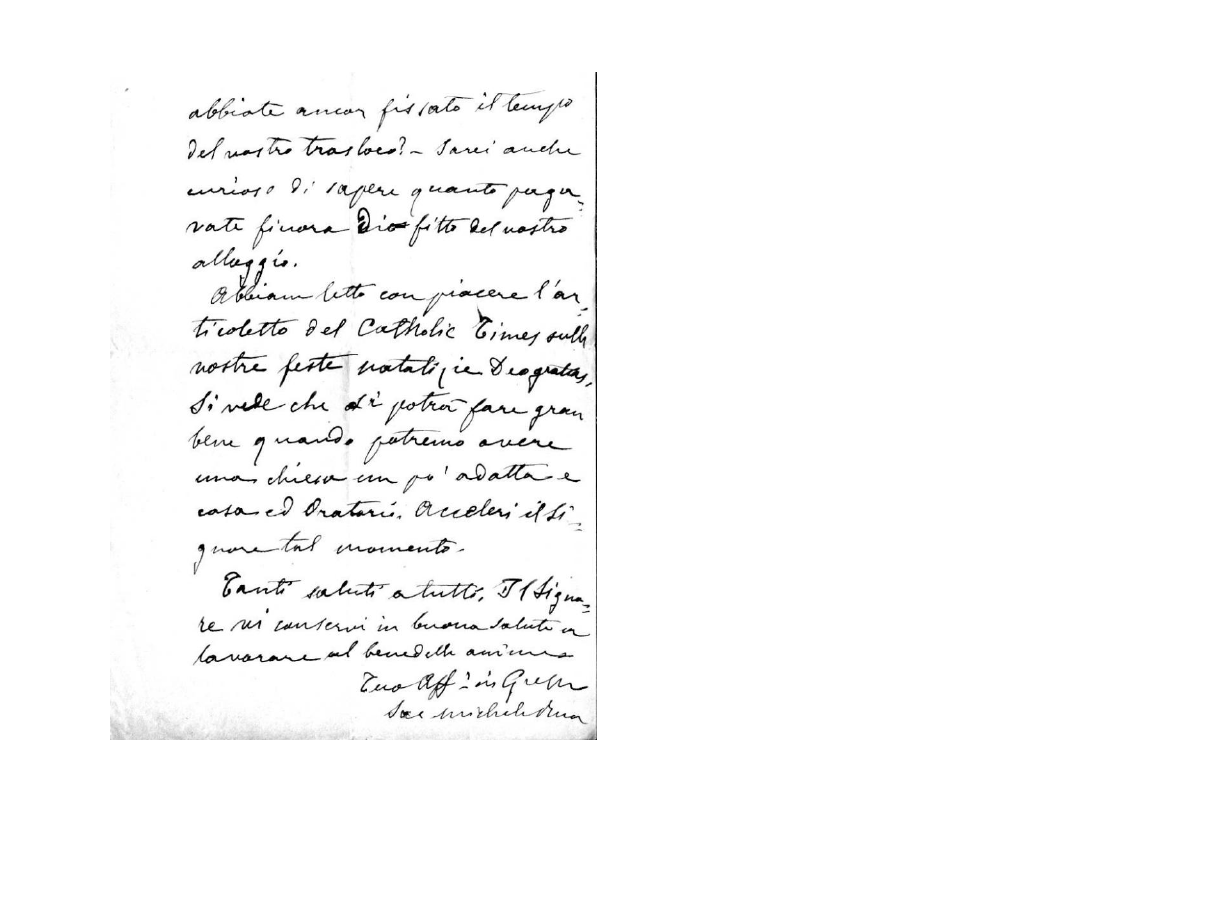 abbiate ancor fissato il tempo
del vostro trasloco? – Sarei anche
curioso di sapere quanto paga=
vate finora di fitto del vostro
alloggio.
Abbiam letto con piacere l'ar=
ticoletto del Catholic Times sulle
vostre feste natalizie Deo gratias,
Si vede che si potrà fare gran
bene quando potremo avere
una chiesa un po' adatta e
casa ed Oratorio. Acceleri il Si=
gnore tal momento.
Tanti saluti a tutti. Il Signo=
re vi conservi in buona salute a
lavorare al bene delle anime
Tuo Aff. in G.
Sac Michele Rua